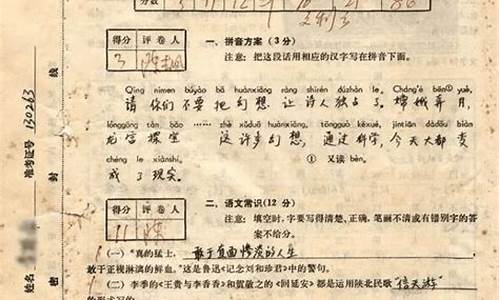 分数
得分 评卷人
3
一、拼音方案（3分）
注意：把这段话用相应的汉字写在拼音下面。
Qǐng nǐmen bùyào bǎ huànxiǎng ràng shīrén dúzhàn le. Cháng'é bèn① yuè,
请 你们 不要 把 幻想 让 诗人 独占 了。嫦娥 奔 月，
lónggōng tàn bǎo … zhè xǔduō huànxiǎng, tōngguò kēxué, jīntiān dàdōu biàn
龙宫 探宝 这 许多 幻想，通过 科学，今天 大都 变
chéng le xiànshí.
成 了 现实。
① 又读 bēn.
得分 评卷人
11
二、语文常识（12分）
注意：填空时，字要写得清楚、正确，笔画不清或有错别字的答
案不给分。
(一) “真的猛士，敢于直面惨淡的人生
敢于正视淋漓的鲜血。”这是鲁迅《记念刘和珍君》中的警句。
(二) 李季的《王贵与李香香》和贺敬之的《回延安》都是运用陕北民歌“信天游”
的形式写的。
线
封
密
准考证号 150263
姓名